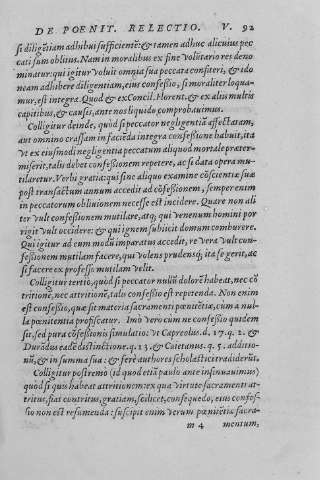 DE POENIT. RELECTIO. V. 92
si diligẽtiam adhibui sufficientẽ: & tamen adhuc alicuius pec
cati sum oblitus. Nam in moralibus ex fine volũtario res deno
minatur: qui igitur voluit omnia sua peccata confiteri, & ido
neam adhibere diligentiam, eius confessio, si moraliter loqua-
mur, est integra. Quod & ex Concil. Florent. & ex aliis multis
capitibus, & causis, ante nos liquido comprobauimus.
Colligitur deinde, quòd si peccator negligentiã affectatam,
aut omnino crassam in faciẽda integra confessione habuit, ita
vt ex eiusmodi negligentia peccatum aliquod mortale præter-
miserit, talis debet confessionem repetere, ac si data opera mu-
tilaretur. Verbi gratia: qui sine aliquo examine cõscientiæ suæ
post transactũ annum accedit ad cõfessionem, semper enim
in peccatorum obliuionem necesse est incidere. Quare non ali
ter vult confessionem mutilare, atq; qui venenum homini por
rigit vult occidere: & qui ignem subiicit domum comburere.
Qui igitur ad eum modũ imparatus accedit, re vera vult con-
fessionem mutilam facere, qui volens prudensq; ita se gerit, ac
si facere ex professo mutilam velit.
Colligitur tertio, quòd si peccator nullũ dolorẽ habeat, nec cõ
tritionẽ, nec attritionẽ, talis confessio est repetenda. Non enim
est confessio, quæ sit materia sacramenti pœnitẽtiæ, cum a nul-
la pœnitentia proficatur. Imò vero cum ne confessio quidem
sit, sed pura cõfessionis simulatio: vt Capreolus. d. 17. q. 2. &
Duradus eadẽ distinctione. q. 13. & Caietanus. q. 5. additio-
nũ, & in summa sua: & ferè authores scholastici tradiderũt.
Colligitur postremò (id quod etiã paulo ante insinuauimus)
quòd si quis habeat attritionem: ex qua virtute sacramenti at-
tritus, fiat contritus, gratiam, scilicet, consequedo, eius confes-
sio non est resumenda: suscipit enim verum pœnitẽtiæ sacra-
m 4 mentum,